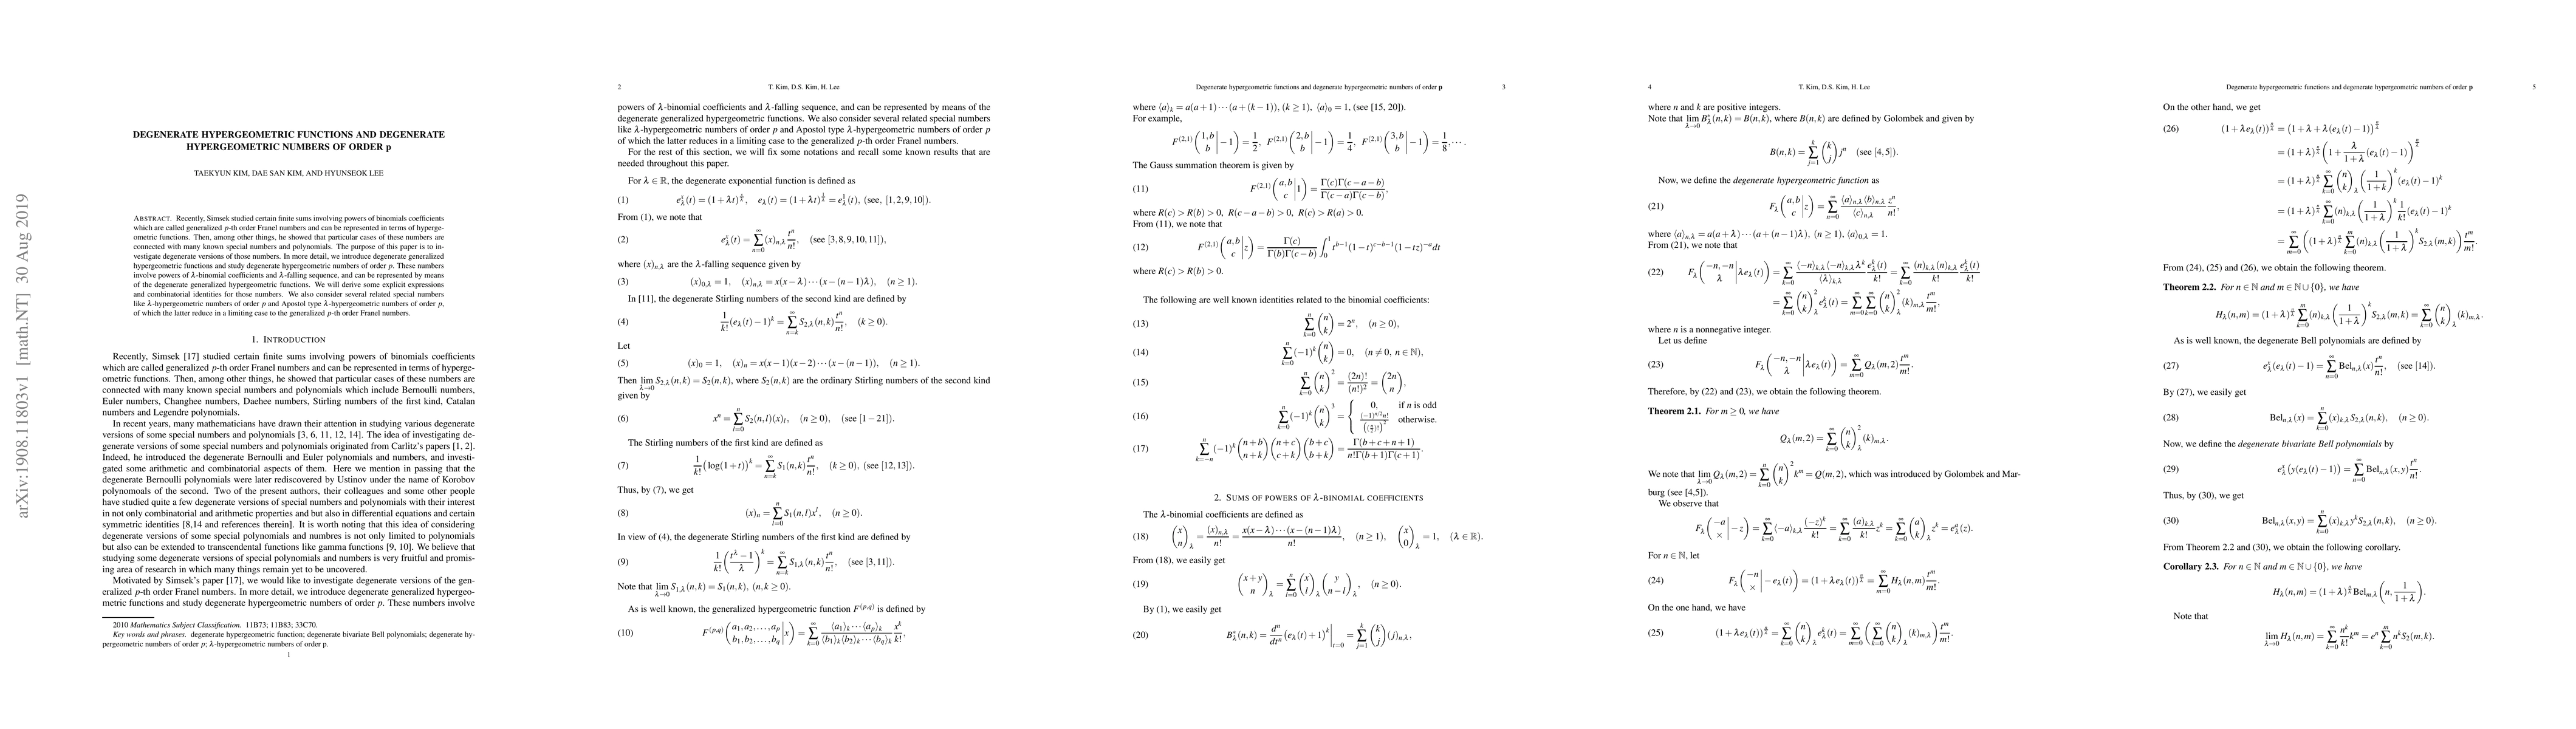 arXiv:1908.11803v1 [math.NT] 30 Aug 2019
DEGENERATE HYPERGEOMETRIC FUNCTIONS AND DEGENERATE
HYPERGEOMETRIC NUMBERS OF ORDER p
TAEKYUN KIM, DAE SAN KIM, AND HYUNSEOK LEE
ABSTRACT. Recently, Simsek studied certain finite sums involving powers of binomials coefficients
which are called generalized p-th order Franel numbers and can be represented in terms of hyperge-
ometric functions. Then, among other things, he showed that particular cases of these numbers are
connected with many known special numbers and polynomials. The purpose of this paper is to in-
vestigate degenerate versions of those numbers. In more detail, we introduce degenerate generalized
hypergeometric functions and study degenerate hypergeometric numbers of order p. These numbers
involve powers of λ-binomial coefficients and λ-falling sequence, and can be represented by means
of the degenerate generalized hypergeometric functions. We will derive some explicit expressions
and combinatorial identities for those numbers. We also consider several related special numbers
like λ-hypergeometric numbers of order p and Apostol type λ-hypergeometric numbers of order p,
of which the latter reduce in a limiting case to the generalized p-th order Franel numbers.
1. INTRODUCTION
Recently, Simsek [17] studied certain finite sums involving powers of binomials coefficients
which are called generalized p-th order Franel numbers and can be represented in terms of hyperge-
ometric functions. Then, among other things, he showed that particular cases of these numbers are
connected with many known special numbers and polynomials which include Bernoulli numbers,
Euler numbers, Changhee numbers, Daehee numbers, Stirling numbers of the first kind, Catalan
numbers and Legendre polynomials.
In recent years, many mathematicians have drawn their attention in studying various degenerate
versions of some special numbers and polynomials [3, 6, 11, 12, 14]. The idea of investigating de-
generate versions of some special numbers and polynomials originated from Carlitz's papers [1, 2].
Indeed, he introduced the degenerate Bernoulli and Euler polynomials and numbers, and investi-
gated some arithmetic and combinatorial aspects of them. Here we mention in passing that the
degenerate Bernoulli polynomials were later rediscovered by Ustinov under the name of Korobov
polynomoals of the second. Two of the present authors, their colleagues and some other people
have studied quite a few degenerate versions of special numbers and polynomials with their interest
in not only combinatorial and arithmetic properties and but also in differential equations and certain
symmetric identities [8,14 and references therein]. It is worth noting that this idea of considering
degenerate versions of some special polynomials and numbres is not only limited to polynomials
but also can be extended to transcendental functions like gamma functions [9, 10]. We believe that
studying some degenerate versions of special polynomials and numbers is very fruitful and promis-
ing area of research in which many things remain yet to be uncovered.
Motivated by Simsek's paper [17], we would like to investigate degenerate versions of the gen-
eralized p-th order Franel numbers. In more detail, we introduce degenerate generalized hypergeo-
metric functions and study degenerate hypergeometric numbers of order p. These numbers involve
2010 Mathematics Subject Classification. 11B73; 11B83; 33C70.
Key words and phrases. degenerate hypergeometric function; degenerate bivariate Bell polynomials; degenerate hy-
pergeometric numbers of order p; λ-hypergeometric numbers of order p.
1
2 T. Kim, D.S. Kim, H. Lee
powers of λ-binomial coefficients and λ-falling sequence, and can be represented by means of the
degenerate generalized hypergeometric functions. We also consider several related special numbers
like λ-hypergeometric numbers of order p and Apostol type λ-hypergeometric numbers of order p
of which the latter reduces in a limiting case to the generalized p-th order Franel numbers.
For the rest of this section, we will fix some notations and recall some known results that are
needed throughout this paper.
For λ ∈ ℝ, the degenerate exponential function is defined as
(1) e_λ^x(t) = (1+λt)^{x/λ}, e_λ(t) = (1+λt)^{1/λ} = e_λ^1(t), (see, [1,2,9,10]).
From (1), we note that
(2) e_λ^x(t) = ∑_{n=0}^∞ (x)_{n,λ} t^n/n!, (see [3,8,9,10,11]),
where (x)_{n,λ} are the λ-falling sequence given by
(3) (x)_{0,λ} = 1, (x)_{n,λ} = x(x−λ)···(x−(n−1)λ), (n ≥ 1).
In [11], the degenerate Stirling numbers of the second kind are defined by
(4) 1/k! (e_λ(t)−1)^k = ∑_{n=k}^∞ S_{2,λ}(n,k) t^n/n!, (k ≥ 0).
Let
(5) (x)_0 = 1, (x)_n = x(x−1)(x−2)···(x−(n−1)), (n ≥ 1).
Then lim_{λ→0} S_{2,λ}(n,k) = S_2(n,k), where S_2(n,k) are the ordinary Stirling numbers of the second kind
given by
(6) x^n = ∑_{l=0}^n S_2(n,l)(x)_l, (n ≥ 0), (see [1−21]).
The Stirling numbers of the first kind are defined as
(7) 1/k! (log(1+t))^k = ∑_{n=k}^∞ S_1(n,k) t^n/n!, (k ≥ 0), (see [12,13]).
Thus, by (7), we get
(8) (x)_n = ∑_{l=0}^n S_1(n,l)x^l, (n ≥ 0).
In view of (4), the degenerate Stirling numbers of the first kind are defined by
(9) 1/k! ((t^λ−1)/λ)^k = ∑_{n=k}^∞ S_{1,λ}(n,k) t^n/n!, (see [3,11]).
Note that lim_{λ→0} S_{1,λ}(n,k) = S_1(n,k), (n,k ≥ 0).
As is well known, the generalized hypergeometric function F^{(p,q)} is defined by
(10) F^{(p,q)}(a_1,a_2,...,a_p; b_1,b_2,...,b_q | x) = ∑_{k=0}^∞ ⟨a_1⟩_k···⟨a_p⟩_k / ⟨b_1⟩_k⟨b_2⟩_k···⟨b_q⟩_k x^k/k!,
Degenerate hypergeometric functions and degenerate hypergeometric numbers of order p 3
where ⟨a⟩_k = a(a+1)···(a+(k−1)), (k ≥ 1), ⟨a⟩_0 = 1, (see [15, 20]).
For example,
F^{(2,1)}(1,b; b | −1) = 1/2, F^{(2,1)}(2,b; b | −1) = 1/4, F^{(2,1)}(3,b; b | −1) = 1/8, ···.
The Gauss summation theorem is given by
(11) F^{(2,1)}(a,b; c | 1) = Γ(c)Γ(c−a−b) / Γ(c−a)Γ(c−b),
where R(c) > R(b) > 0, R(c−a−b) > 0, R(c) > R(a) > 0.
From (11), we note that
(12) F^{(2,1)}(a,b; c | z) = Γ(c)/(Γ(b)Γ(c−b)) ∫_0^1 t^{b−1}(1−t)^{c−b−1}(1−tz)^{−a}dt
where R(c) > R(b) > 0.
The following are well known identities related to the binomial coefficients:
(13) ∑_{k=0}^n (n choose k) = 2^n, (n ≥ 0),
(14) ∑_{k=0}^n (−1)^k (n choose k) = 0, (n ≠ 0, n ∈ ℕ),
(15) ∑_{k=0}^n (n choose k)^2 = (2n)!/(n!)^2 = (2n choose n),
(16) ∑_{k=0}^n (−1)^k (n choose k)^3 = { 0, if n is odd; (−1)^{n/2} n!/((n/2)!)^2 otherwise.
(17) ∑_{k=−n}^n (−1)^k (n+b choose n+k)(n+c choose c+k)(b+c choose b+k) = Γ(b+c+n+1)/(n!Γ(b+1)Γ(c+1)),
2. SUMS OF POWERS OF λ-BINOMIAL COEFFICIENTS
The λ-binomial coefficients are defined as
(18) (x choose n)_λ = (x)_{n,λ}/n! = x(x−λ)···(x−(n−1)λ)/n!, (n ≥ 1), (x choose 0)_λ = 1, (λ ∈ ℝ).
From (18), we easily get
(19) (x+y choose n)_λ = ∑_{l=0}^n (x choose l)_λ (y choose n−l)_λ, (n ≥ 0).
By (1), we easily get
(20) B_λ^*(n,k) = d^n/dt^n (e_λ(t)+1)^k |_{t=0} = ∑_{j=1}^k (k choose j)(j)_{n,λ},
4 T. Kim, D.S. Kim, H. Lee
where n and k are positive integers.
Note that lim_{λ→0} B_λ^*(n,k) = B(n,k), where B(n,k) are defined by Golombek and given by
B(n,k) = ∑_{j=1}^k (k choose j) j^n (see [4,5]).
Now, we define the degenerate hypergeometric function as
(21) F_λ(a,b; c | z) = ∑_{n=0}^∞ ⟨a⟩_{n,λ}⟨b⟩_{n,λ}/⟨c⟩_{n,λ} z^n/n!,
where ⟨a⟩_{n,λ} = a(a+λ)···(a+(n−1)λ), (n ≥ 1), ⟨a⟩_{0,λ} = 1.
From (21), we note that
(22) F_λ(−n,−n; λ | λe_λ(t)) = ∑_{k=0}^∞ ⟨−n⟩_{k,λ}⟨−n⟩_{k,λ}λ^k/⟨λ⟩_{k,λ} e_λ^k(t)/k! = ∑_{k=0}^∞ (n)_{k,λ}(n)_{k,λ}/k! e_λ^k(t)/k!
= ∑_{k=0}^∞ (n choose k)_λ^2 e_λ^k(t) = ∑_{m=0}^∞ ∑_{k=0}^∞ (n choose k)_λ^2 (k)_{m,λ} t^m/m!,
where n is a nonnegative integer.
Let us define
(23) F_λ(−n,−n; λ | λe_λ(t)) = ∑_{m=0}^∞ Q_λ(m,2) t^m/m!.
Therefore, by (22) and (23), we obtain the following theorem.
Theorem 2.1. For m ≥ 0, we have
Q_λ(m,2) = ∑_{k=0}^∞ (n choose k)_λ^2 (k)_{m,λ}.
We note that lim_{λ→0} Q_λ(m,2) = ∑_{k=0}^∞ (n choose k)^2 k^m = Q(m,2), which was introduced by Golombek and Mar-
burg (see [4,5]).
We observe that
F_λ(−a; × | −z) = ∑_{k=0}^∞ ⟨−a⟩_{k,λ} (−z)^k/k! = ∑_{k=0}^∞ (a)_{k,λ}/k! z^k = ∑_{k=0}^∞ (a choose k)_λ z^k = e_λ^a(z).
For n ∈ ℕ, let
(24) F_λ(−n; × | −e_λ(t)) = (1+λe_λ(t))^{n/λ} = ∑_{m=0}^∞ H_λ(n,m) t^m/m!.
On the one hand, we have
(25) (1+λe_λ(t))^{n/λ} = ∑_{k=0}^∞ (n choose k)_λ e_λ^k(t) = ∑_{m=0}^∞ (∑_{k=0}^∞ (n choose k)_λ (k)_{m,λ}) t^m/m!.
Degenerate hypergeometric functions and degenerate hypergeometric numbers of order p 5
On the other hand, we get
(26) (1+λe_λ(t))^{n/λ} = (1+λ+λ(e_λ(t)−1))^{n/λ}
= (1+λ)^{n/λ} (1 + λ/(1+λ) (e_λ(t)−1))^{n/λ}
= (1+λ)^{n/λ} ∑_{k=0}^∞ (n choose k)_λ (1/(1+k))^k (e_λ(t)−1)^k
= (1+λ)^{n/λ} ∑_{k=0}^∞ (n)_{k,λ} (1/(1+λ))^k 1/k! (e_λ(t)−1)^k
= ∑_{m=0}^∞ ((1+λ)^{n/λ} ∑_{k=0}^m (n)_{k,λ} (1/(1+λ))^k S_{2,λ}(m,k)) t^m/m!.
From (24), (25) and (26), we obtain the following theorem.
Theorem 2.2. For n ∈ ℕ and m ∈ ℕ∪{0}, we have
H_λ(n,m) = (1+λ)^{n/λ} ∑_{k=0}^m (n)_{k,λ} (1/(1+λ))^k S_{2,λ}(m,k) = ∑_{k=0}^∞ (n choose k)_λ (k)_{m,λ}.
As is well known, the degenerate Bell polynomials are defined by
(27) e_λ^x(e_λ(t)−1) = ∑_{n=0}^∞ Bel_{n,λ}(x) t^n/n!, (see [14]).
By (27), we easily get
(28) Bel_{n,λ}(x) = ∑_{k=0}^n (x)_{k,λ}S_{2,λ}(n,k), (n ≥ 0).
Now, we define the degenerate bivariate Bell polynomials by
(29) e_λ^x(y(e_λ(t)−1)) = ∑_{n=0}^∞ Bel_{n,λ}(x,y) t^n/n!.
Thus, by (30), we get
(30) Bel_{n,λ}(x,y) = ∑_{k=0}^n (x)_{k,λ}y^kS_{2,λ}(n,k), (n ≥ 0).
From Theorem 2.2 and (30), we obtain the following corollary.
Corollary 2.3. For n ∈ ℕ and m ∈ ℕ∪{0}, we have
H_λ(n,m) = (1+λ)^{n/λ} Bel_{m,λ}(n, 1/(1+λ)).
Note that
lim_{λ→0} H_λ(n,m) = ∑_{k=0}^∞ n^k/k! k^m = e^n ∑_{k=0}^m n^kS_2(m,k).